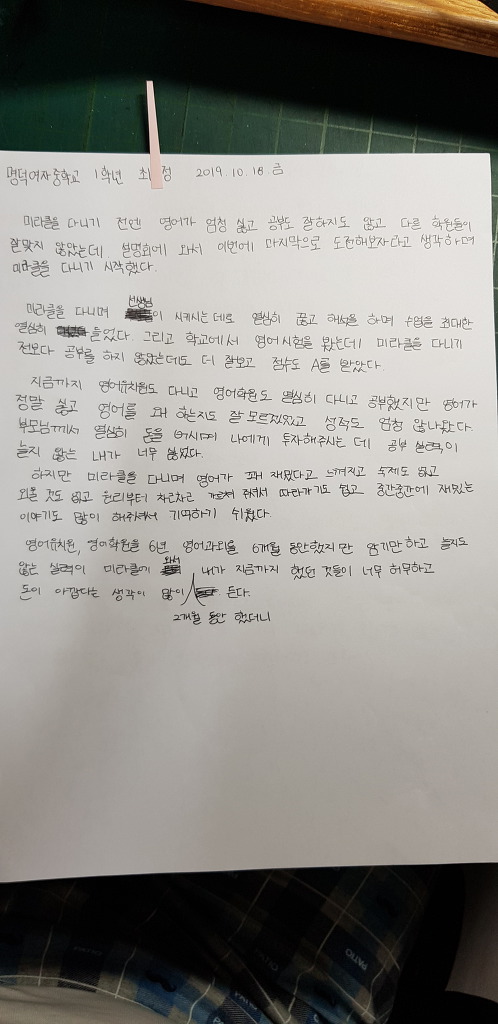 명덕여자중학교 1학년 최 정 2019.10.18.금
미라클을 다니기 전엔 영어가 엄청 싫고 공부도 잘하지도 않고 다른 학원들이
잘맞지 않았는데 설명회에 와서 이번에 마지막으로 도전해보자라고 생각하며
미라클을 다니기 시작했다.
미라클을 다니며 선생님이 시키시는데로 열심히 끊고 해석을 하며 수업을 최대한
열심히 들었다. 그리고 학교에서 영어시험을 봤는데 미라클을 다니기
전보다 공부를 하지 않았는데도 더 잘보고 점수도 A를 받았다.
지금까지 영어유치원도 다니고 영어학원도 열심히 다니고 공부했지만 영어가
정말 싫고 영어를 왜 하는지도 잘 모르겠었고 성적도 엄청 않나왔다.
부모님께서 열심히 돈을 버시며 나에게 투자해주시는 데 공부 실력이
늘지 않는 내가 너무 싫었다.
하지만 미라클을 다니며 영어가 꽤 재밌다고 느껴진고 숙제도 없고
외울 것도 없고 원리부터 차근차근 가르쳐 주셔서 따라가기도 쉽고 중간중간에 재밌는
이야기도 많이 해주셔서 기억하기 쉬웠다.
영어유치원, 영어학원을 6년 영어과외을 6개월 동안했지만 않기만하고 늘지도
않는 실력이 미라클에 와서 내가 지금까지 했던 것들이 너무 허무하고
돈이 아깝다는 생각이 많이 든다.
2개월 동안 했더니
PATIO
PATIO